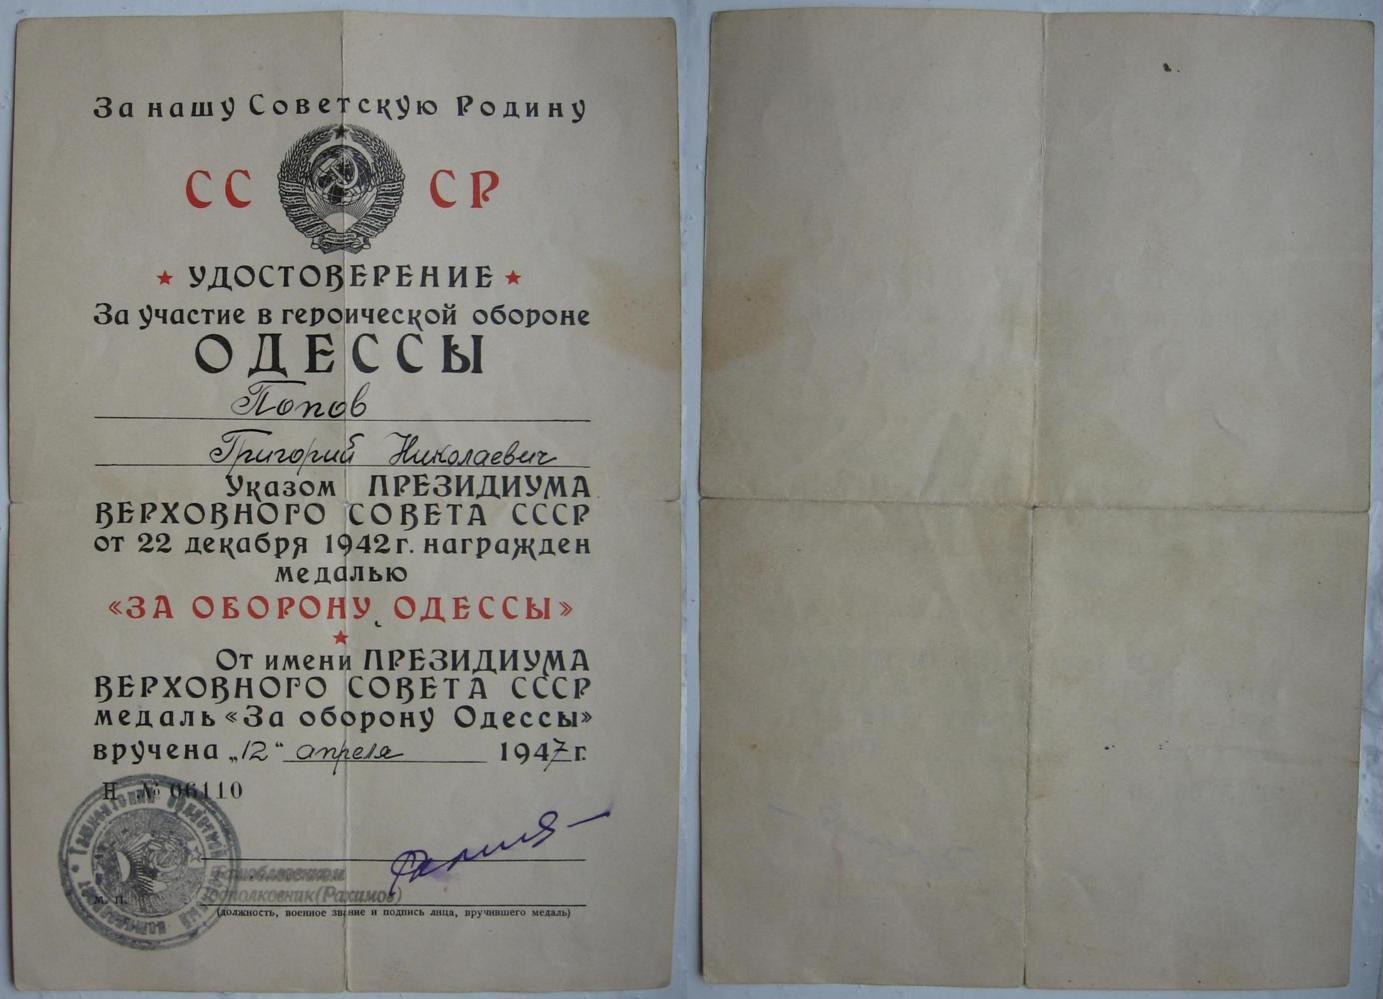 За нашу Советскую Родину
СС СР
УДОСТОВЕРЕНИЕ
За участие в героической обороне
ОДЕССЫ
Попов
Григорий Николаевич
Указом ПРЕЗИДИУМА
ВЕРХОВНОГО СОВЕТА СССР
от 22 декабря 1942 г. награжден
медалью
«ЗА ОБОРОНУ ОДЕССЫ»
От имени ПРЕЗИДИУМА
ВЕРХОВНОГО СОВЕТА СССР
медаль «За оборону Одессы»
вручена „12“ апреля 1947 г.
Н № 06110
подполковник (Рахимов)
м. п.
(должность, военное звание и подпись лица, вручившего медаль)